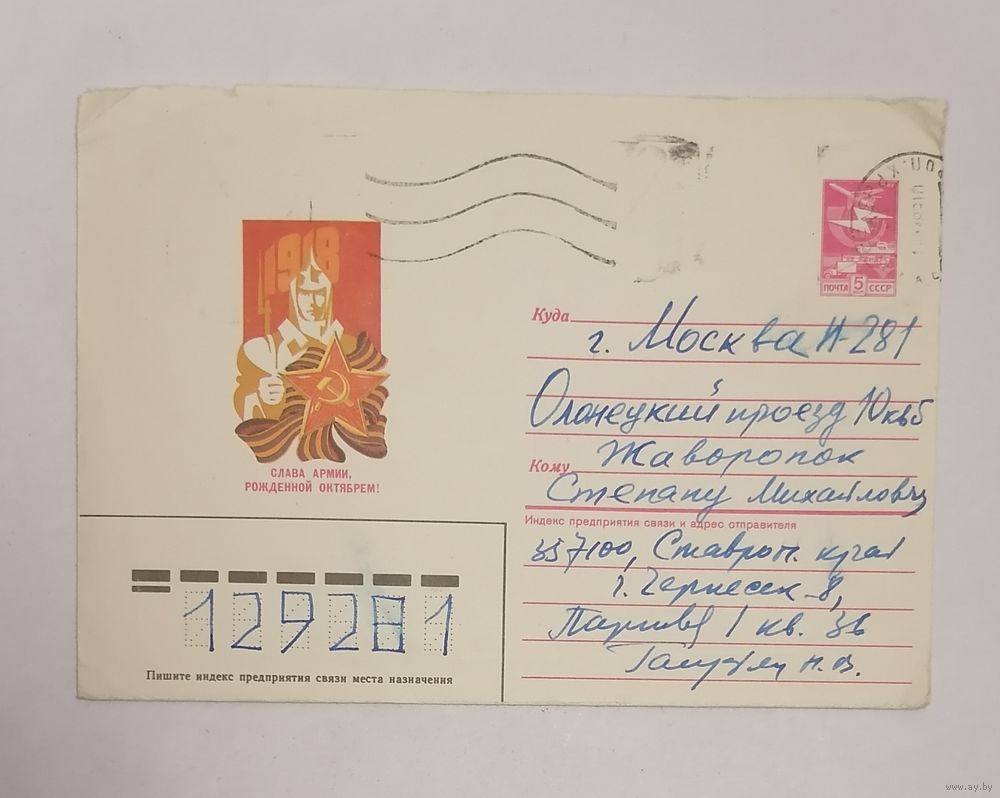 1918
СЛАВА АРМИИ,
РОЖДЕННОЙ ОКТЯБРЕМ!
ПОЧТА 5 СССР
Куда
г. Москва И-281
Олонецкий проезд 10 кв 5
Жаворонок
Кому
Степану Михайловичу
Индекс предприятия связи и адрес отправителя
357100, Ставроп. край
г. Черкесск-8,
1 кв. 36
Н. В.
129281
Пишите индекс предприятия связи места назначения
www.ay.by